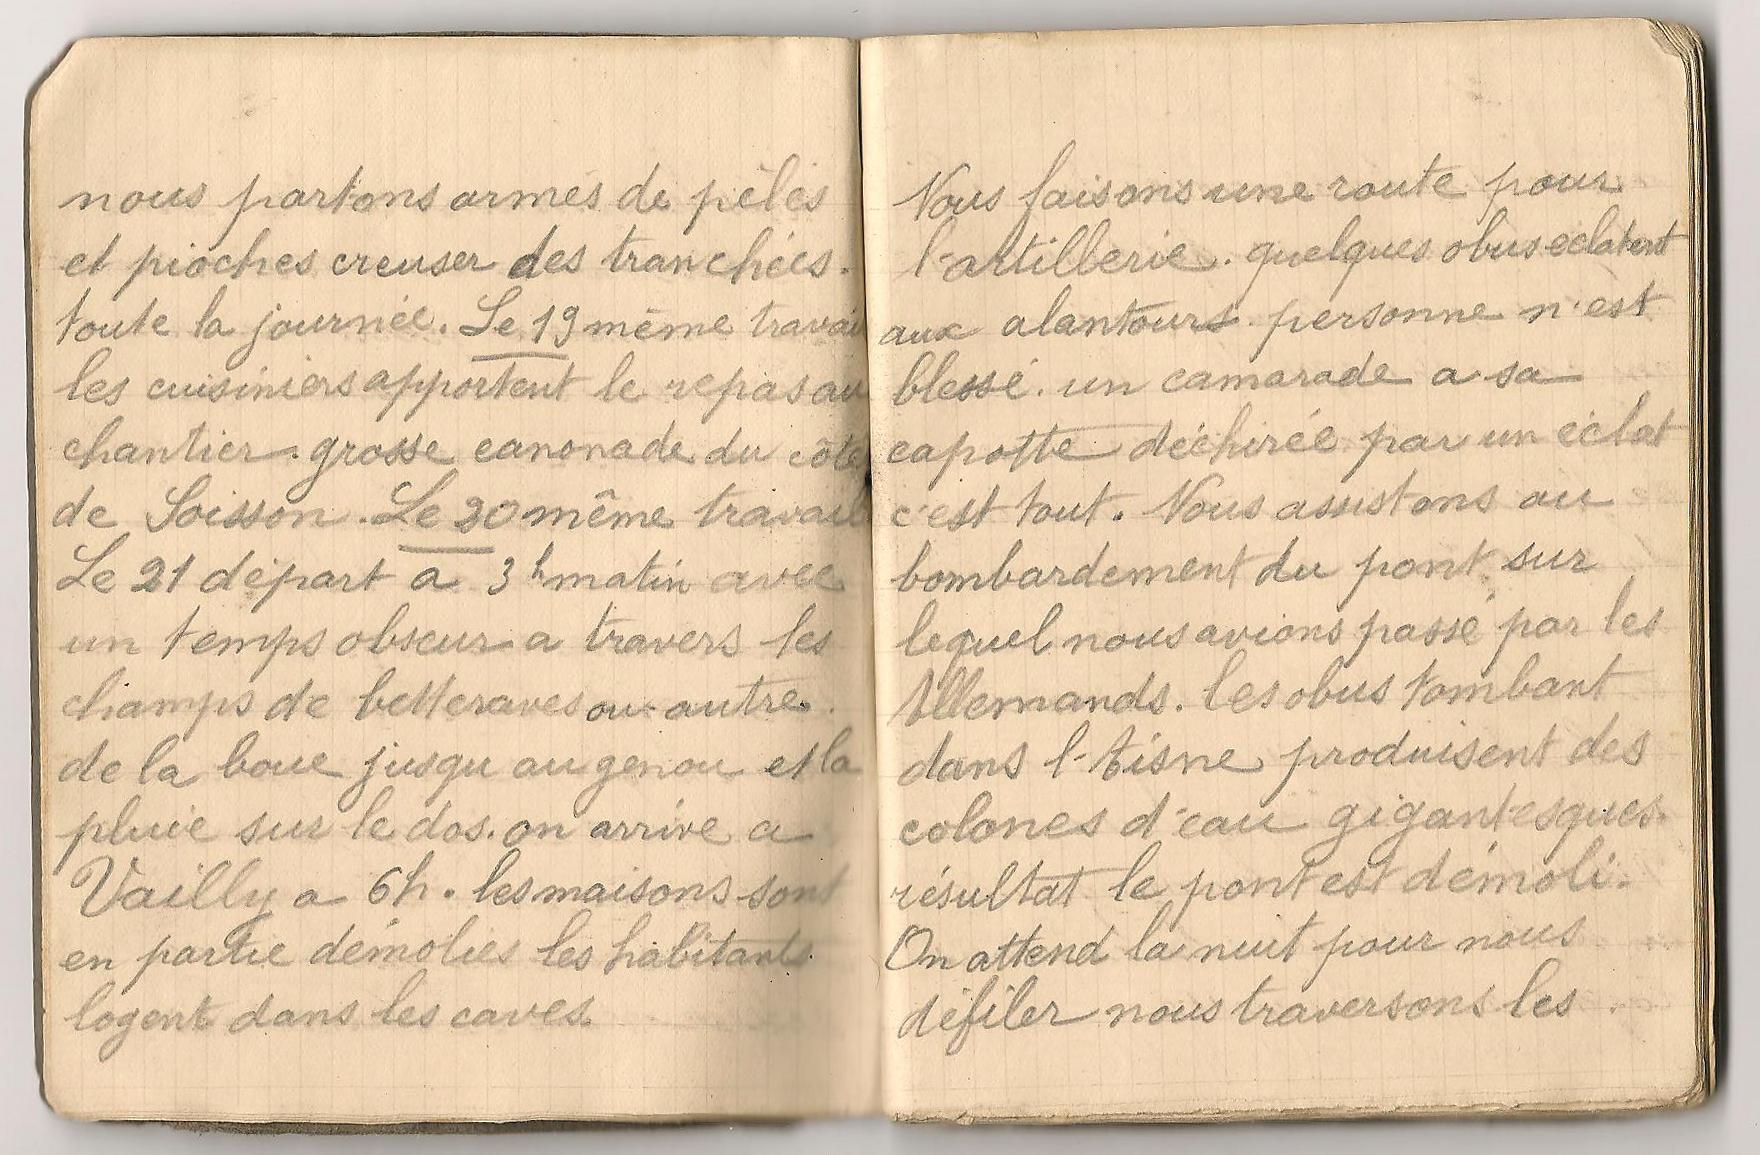 nous partons armés de pèles
et pioches creuser des tranchées.
toute la journée. Le 19 même travai
les cuisiniers apportent le repas au
chantier. grosse canonade du côté
de Soisson. Le 20 même travail
Le 21 départ a 3h matin avec
un temps obscur a travers les
champs de betteraves ou autre.
de la boue jusqu au genou et la
pluie sur le dos. on arrive a
Vailly a 6h. les maisons sont
en partie démolies les habitants
logent dans les caves.
Nous faisons une route pour
l'artillerie. quelques obus eclatent
aux alantours personne n'est
blessé. un camarade a sa
capotte déchirée par un éclat
c'est tout. Nous assistons au
bombardement du pont sur
lequel nous avions passé par les
Allemands. les obus tombant
dans l'Aisne produisent des
colones d'eau gigantesques.
résultat le pont est démoli.
On attend la nuit pour nous
défiler nous traversons les